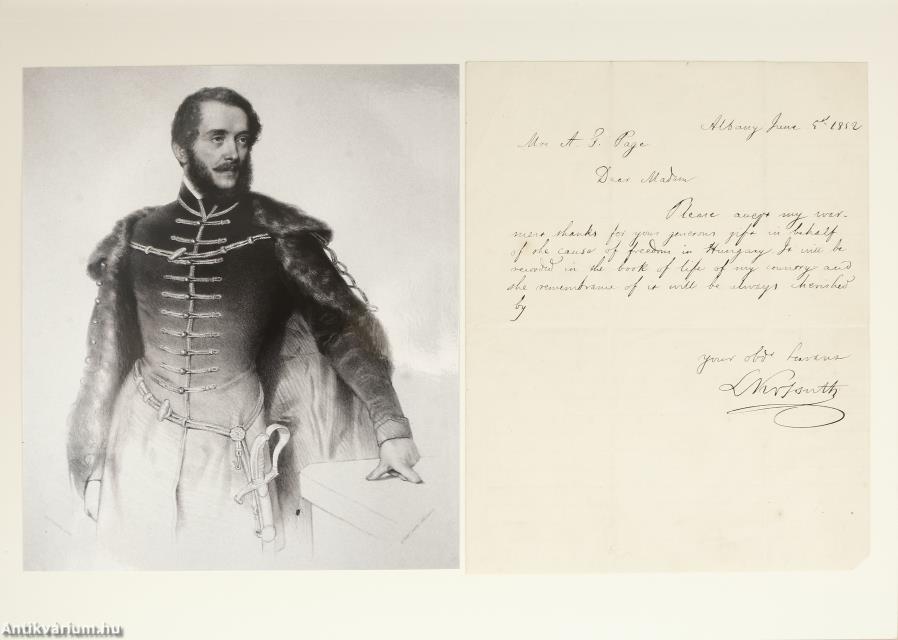 Albany June 5d 1852
Mrs A. G. Page
Dear Madam
Please accept my war-
mest thanks for your generous gift in behalf
of the cause of freedom in Hungary. It will be
recorded in the book of life of my country and
the remembrance of it will be always cherished
by
your obdt servant
L Kossuth
Antikvárium.hu